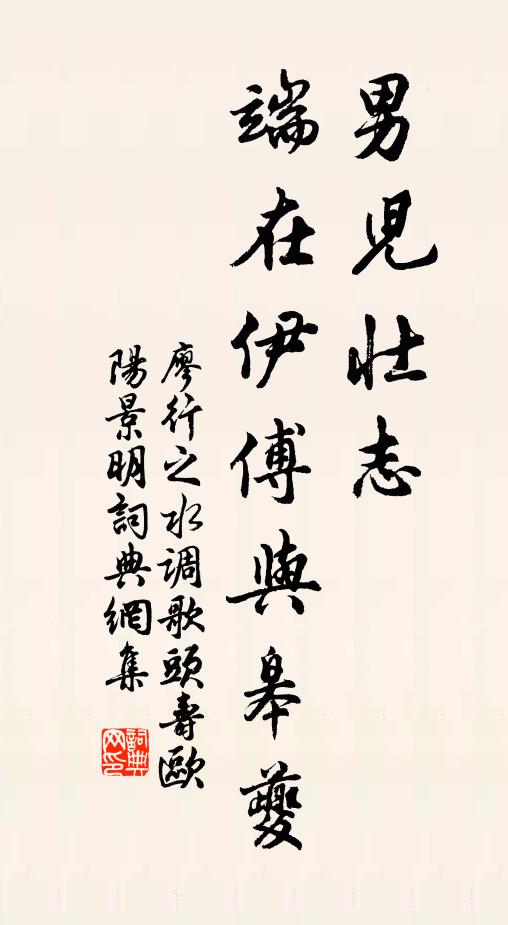 男兒壯志
端在伊傅與皋夔
廖行之水调歌頭壽歐
陽景明詞典網集
詞典网印